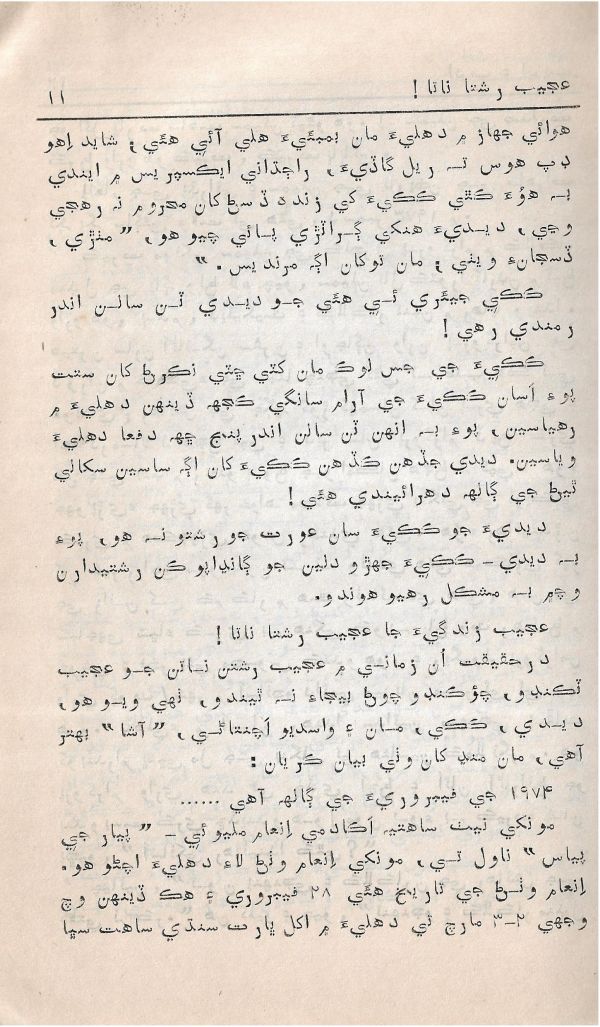 عجيب رشتا ناتا !
١١
هوائي جهاز ۾ دهليءَ مان بمبئيءَ هلي آئي هئي؛ شايد اِهو
ڊپ هوس تہ ريل گاڏيءَ، راجڌاني ايڪسپريس ۾ ايندي
بہ هوءَ ڪٿي ڪڪيءَ کي زندہ ڏسڻ کان محروم نہ رهجي
وڃي، ديديءَ هنکي ڳراٽڙي پائي چيو هو، ”منڙي،
ڏسجانءِ ويٺي؛ مان توکان اڳہ مرنديس.“
ڪڪي جيئري ئي هئي جو ديدي ٽن سالن اندر
رمندي رهي !
ڪڪيءَ جي جس لوڪ مان کٽي چٽي نڪرڻ کان ستت
پوءِ اَسان ڪڪيءَ جي آرام سانگي ڪجهہ ڏينهن دهليءَ ۾
رهياسين، پوءِ بہ انهن ٽن سالن اندر پنج ڇهہ دفعا دهليءَ
وياسين. ديدي جڏهن ڪڏهن ڪڪيءَ کان اڳہ ساسين سکالي
ٿيڻ جي ڳالهہ دهرائيندي هئي !
ديديءَ جو ڪڪيءَ سان عورت جو رشتو نہ هو، پوءِ
بہ ديدي – ڪڪيءَ جهڙو دلين جو ڳانڍاپو ڪن رشتيدارن
وچ ۾ بہ مشڪل رهيو هوندو.
عجيب زندگيءَ جا عجيب رشتا ناتا !
درحقيقت اُن زماني ۾ عجيب رشتن ناتن جو عجيب
ٽڪنڊو، چؤڪنڊو چوڻ بيجاءِ نہ ٿيندو، ٺهي ويو هو،
ديدي، ڪڪي، مان ۽ واسديو اَچنتاڻي، ”آشا“ بهتر
آهي، مان منڍ کان وٺي بيان ڪريان :
١٩٧٤ جي فيبروريءَ جي ڳالهہ آهي ......
مونکي تيت ساهتيہ اَڪادمي اِنعام مليو ئي – ”پيار جي
پياس“ ناول تي، مونکي اِنعام وٺڻ لاءِ دهليءَ اچڻو هو.
اِنعام وٺڻ جي تاريخ هئي ٢٨ فيبروري ۽ هڪ ڏينهن وچ
وجهي ٢–٣ مارچ تي دهليءَ ۾ اکل ڀارت سنڌي ساهت سڀا